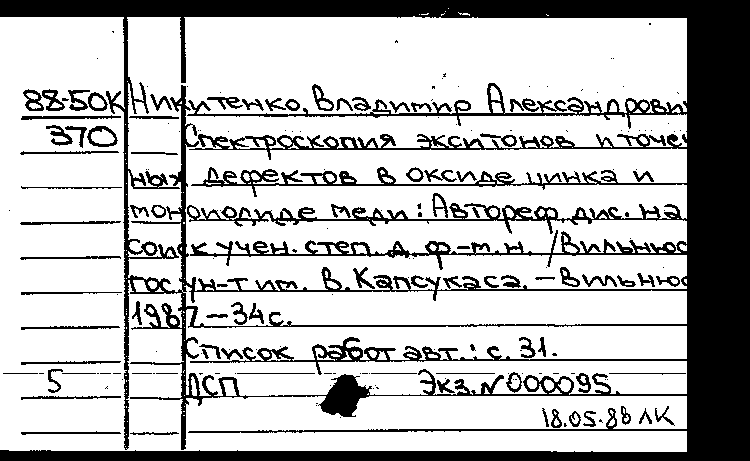 88-50К Никитенко, Владимир Александрович
370 Спектроскопия экситонов и точеч
ных дефектов в оксиде цинка и
моноиодиде меди : Автореф. дис. на
соиск. учен. степ. д. ф.-м. н. / Вильнюс
гос. ун-т им. В. Капсукаса. – Вильнюс
1987. – 34 с.
Список работ авт. : с. 31.
5 ДСП. Экз. N 000095.
18.05.88 ЛК